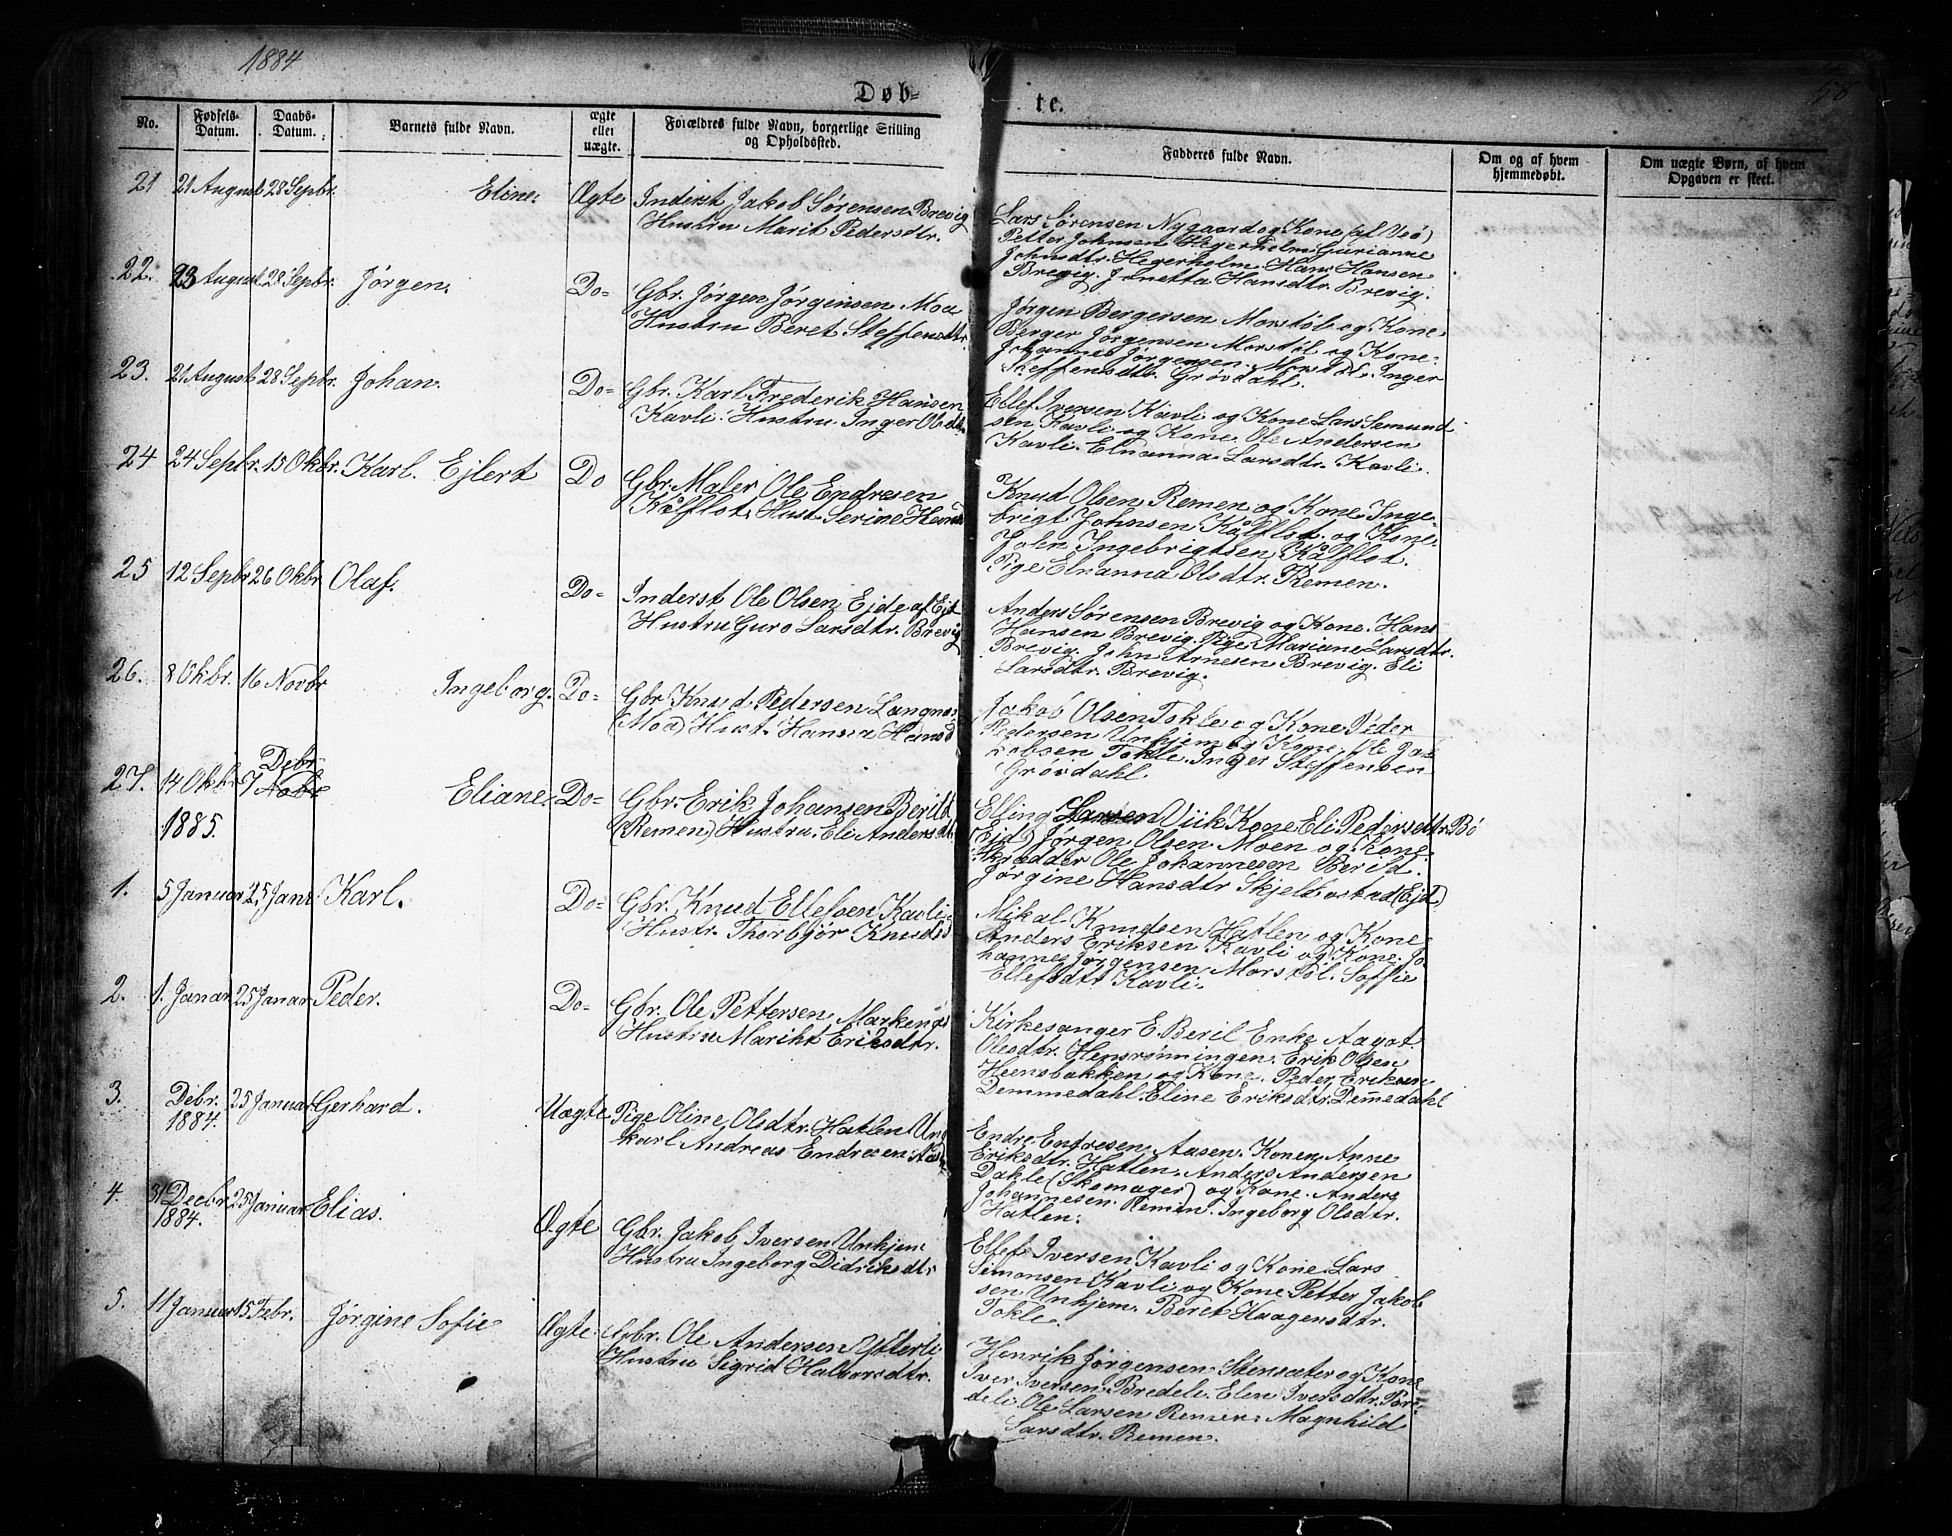 1884
58
Døb-
te.
No.
Fødsels-
Datum.
Daabs-
Datum.
Barnets fulde Navn.
ægte
eller
uægte.
Forældres fulde Navn, borgerlige Stilling
og Opholdssted.
Fadderes fulde Navn.
Om og af hvem
hjemmedøbt.
Om uægte Børn, af hvem
Opgaven er skeet.
21 21 August 28 Sepbr. Eline. Ægte Inderst Jakob Sørensen Brevig
Hustru Marit Pedersdtr.
Lars Sørensen Nygaard og Kone (af Veø)
Petter Johnsen Hegerholm. Gurianne
Johnsdtr. Hegerholm. Hans Hansen
Brevig. Jonetta Hansdtr. Brevig.
22. 23 August 28 Sepbr. Jørgen. Do= Gbr. Jørgen Jørgensen Moa
Hustru Beret Steffensdtr.
Jørgen Bergersen Morstøl og Kone.
Berger Jørgensen Morstøl og Kone.
Johannes Jørgensen Morstøl. Inger
Steffensdtr. Grøvdahl.
23. 21 August 28 Sepbr. Johan. Do= Gbr. Karl Frederik Hansen
Kavli. Hustru Inger Olsdtr.
Ellef Iversen Kavli og Kone Lars Semund
sen Kavli og Kone. Ole Andersen
Kavli. Elnanna Larsdtr. Kavli.
24 24 Sepbr. 15 Okbr. Karl Ejlert Do Gbr. Maler Ole Endresen
Kålflot. Hust. Serine Hans
Knud Olsen Remen og Kone. Inge-
brigt Johnsen Kålflot og Kone.
John Ingebrigtsen Kålflot.
Pige Elnanna Olsdtr. Remen.
25 12 Sepbr 26 Okbr Olaf. Do= Inderst Ole Olsen Ejde af Ejd
Hustru Guro Larsdtr. Brevig
Anders Sørensen Brevig og Kone. Hans
Hansen Brevig. Pige Mariane Larsdtr.
Brevig. John Arnesen Brevig. Eli
Larsdtr. Brevig.
26. 8 Okbr. 16 Novbr Ingeborg. Do= Gbr Knud Pedersen Langnes
(Moa) Hust. Hansia Hansd
Jakob Olsen Tokle og Kone Peder
Pedersen Unhjem og Kone. Ole Ja-
kobsen Tokle. Inger Steffensen
Grøvdahl.
Debr
27. 14 Okbr 7 Nobr Eliane. Do= Gbr. Erik Johansen Berild
(Remen) Hustru. Eli Andersdtr
Elling Larsen Viik Kone Eli Pedersdtr. Bø
(Ejd) Jørgen Olsen Moen og Kone.
Skrædder Ole Johannesen Berild.
Jørgine Hansdtr Skjelbostad (Ejd)
1885.
1. 5 Januar 25 Janr Karl. Do= Gbr. Knud Ellefsen Kavli
Hustr. Thorbjør Knudsd
Mikal Knudsen Hatlen og Kone
Anders Eriksen Kavli og Kone. Jo
hannes Jørgensen Morstøl. Soffie
Ellefsdtr Kavli.
2. 1. Janar 25 Janar Peder. Do= Gbr. Ole Pettersen Markenes
Hustru Marikt Eriksdtr.
Kirkesanger E. Beril Enke Aagot
Olesdtr. Hensrønningen. Erik Olsen
Heensbakken og Kone. Peder Eriksen
Demmedahl. Eline Eriksdtr. Demedahl
3. Debr. 25 Januar Gerhard. Uægte Pige Oline Olsdtr. Hatlen Ung
1884. karl Andreas Endresen Aas
Endre Endresen Aasen. Konen Anne
Eriksdtr. Hatlen. Anders Andersen
Dakle (Skomager) og Kone. Anders
Johannesen Remen. Ingeborg Olsdtr.
Hatlen.
4. 31 Decbr 25 Januar Elias. Ægte Gbr. Jakob Iversen Unhjem
1884. Hustru Ingeborg Didriksdtr
Ellef Iversen Kavli og Kone Lars
Simonsen Kavli og Kone Petter Jakob
sen Unhjem. Beret Haagensdtr.
Tokle.
5. 11 Januar 15 Febr. Jørgine Sofie Ægte. Gbr. Ole Andersen Ytterli
Hustru Sigrid Halvorsdtr.
Henrik Jørgensen Stensæter og Kone
Iver Iversen Bredeli. Elen Iversdtr. Bre-
deli. Ole Larsen Remen. Magnhild
Larsdtr. Remen.